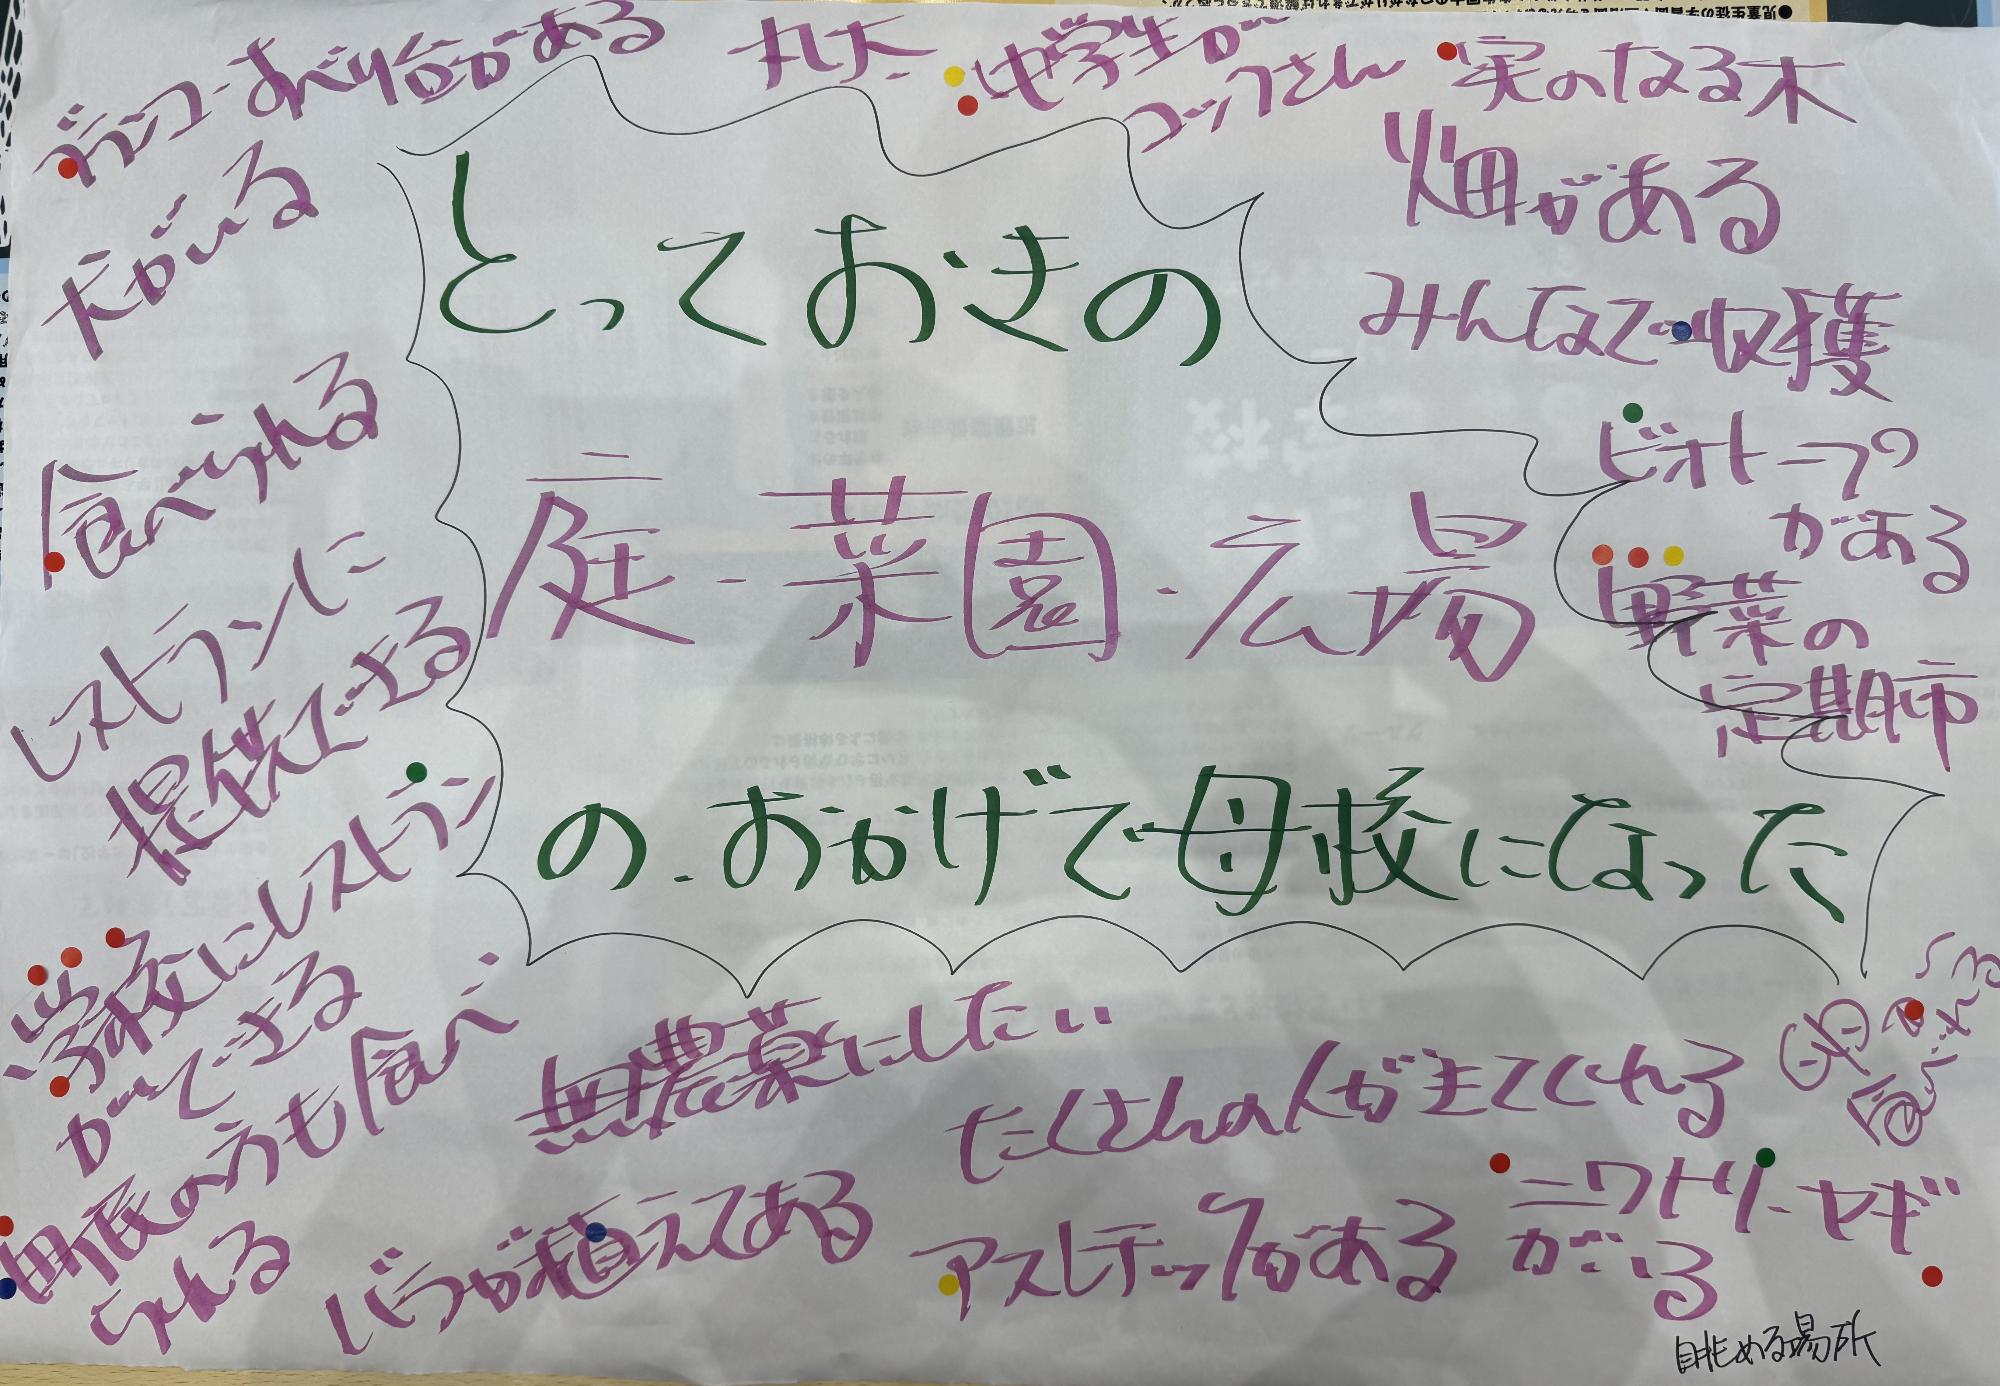 ブランコ・すべり台がある
丸太
地学生が
コックさん
実のなる木
犬がいる
畑がある
みんなで収獲
とっておきの
食べられる
ビオトープの
がある
庭・菜園・広場
野菜の
定期市
レストランに
提供できる
の、おかげで母校になった
学校にレストラン
ができる
無農薬にしたい
たくさんの人が来てくれる
地域の方も食べ
られる
バラが植えてある
アスレチックがある
ニワトリ・ヤギ
がいる
眺める場所